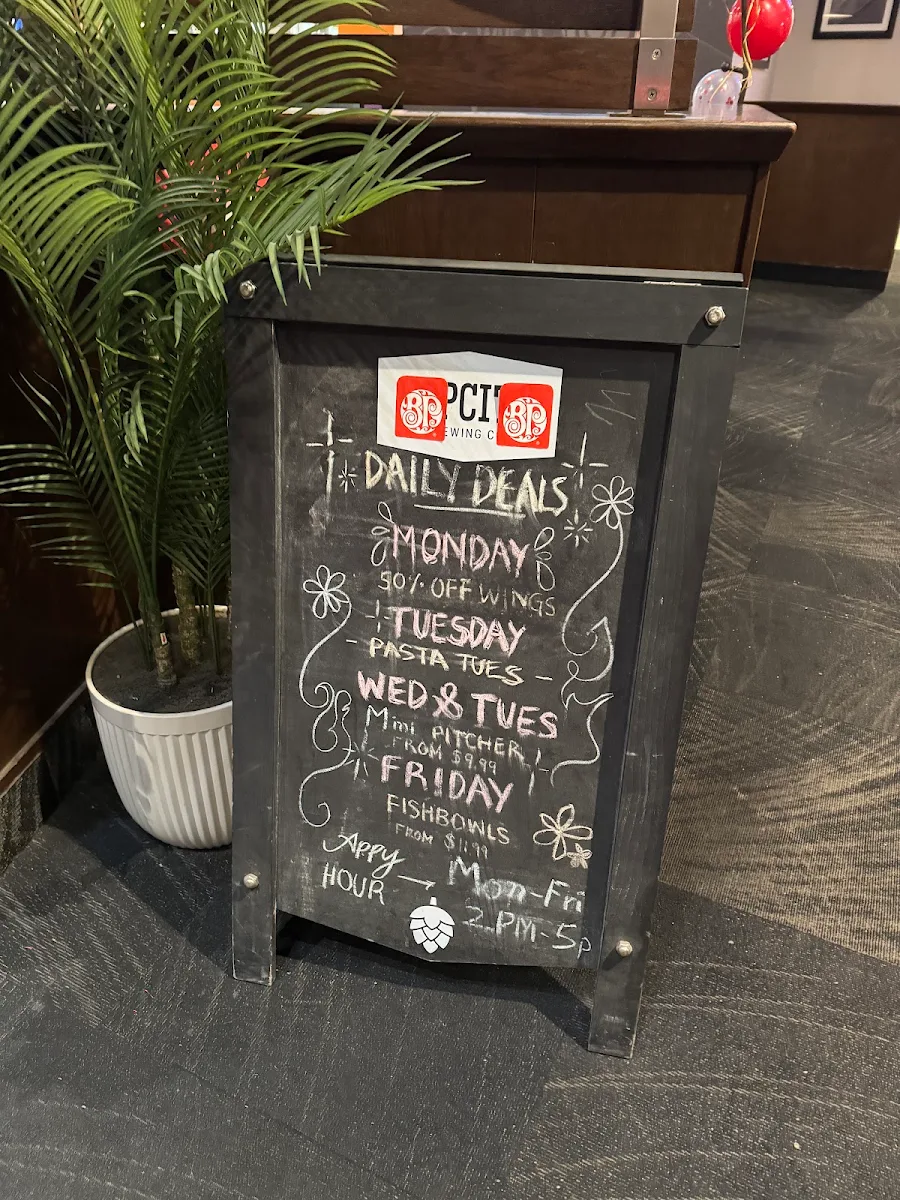 BP PCI BP
EWING C
DAILY DEALS
MONDAY
50% OFF WINGS
TUESDAY
PASTA TUES
WED & TUES
Mini PITCHER
FROM $9.99
FRIDAY
FISHBOWLS
FROM $11.99
Appy
HOUR
Mon-Fri
2PM-5p